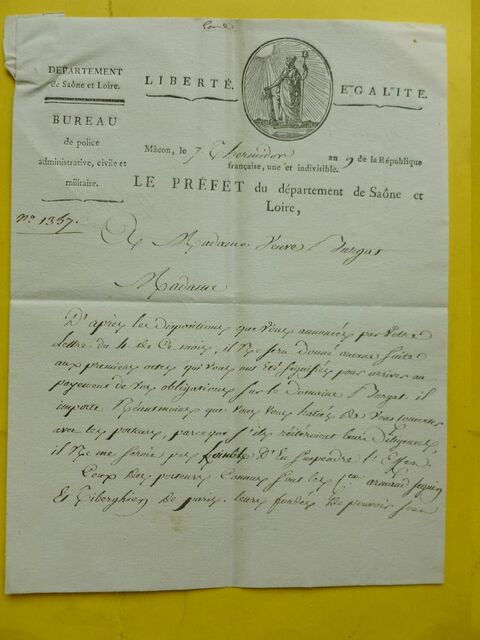 DEPARTEMENT
de Saône et Loire.
BUREAU
de police
administrative, civile et
militaire.
LIBERTÉ.
EGALITÉ.
Mâcon, le 7 Thermidor an 9 de la République
française, une et indivisible.
LE PRÉFET du département de Saône et
Loire,
N.º 1357.
A Madame Veuve
Madame
D'après les dispositions que vous annoncés par votre
lettre du 4 de ce mois, il ne sera donné aucune suite
aux premiers actes qui vous ont été signifiés pour arriver au
payement de vos obligations sur le Domaine d'. il
importe néantmoins que vous vous hatiés de vous
avec les porteurs, parceque s'ils réitéroient leurs diligences,
il ne me seroit pas possible d'en suspendre l'effet.
Ceux des porteurs connus sont les C.en armand seguin
Et Tiberghien de paris. leurs fondés de pouvoir sont